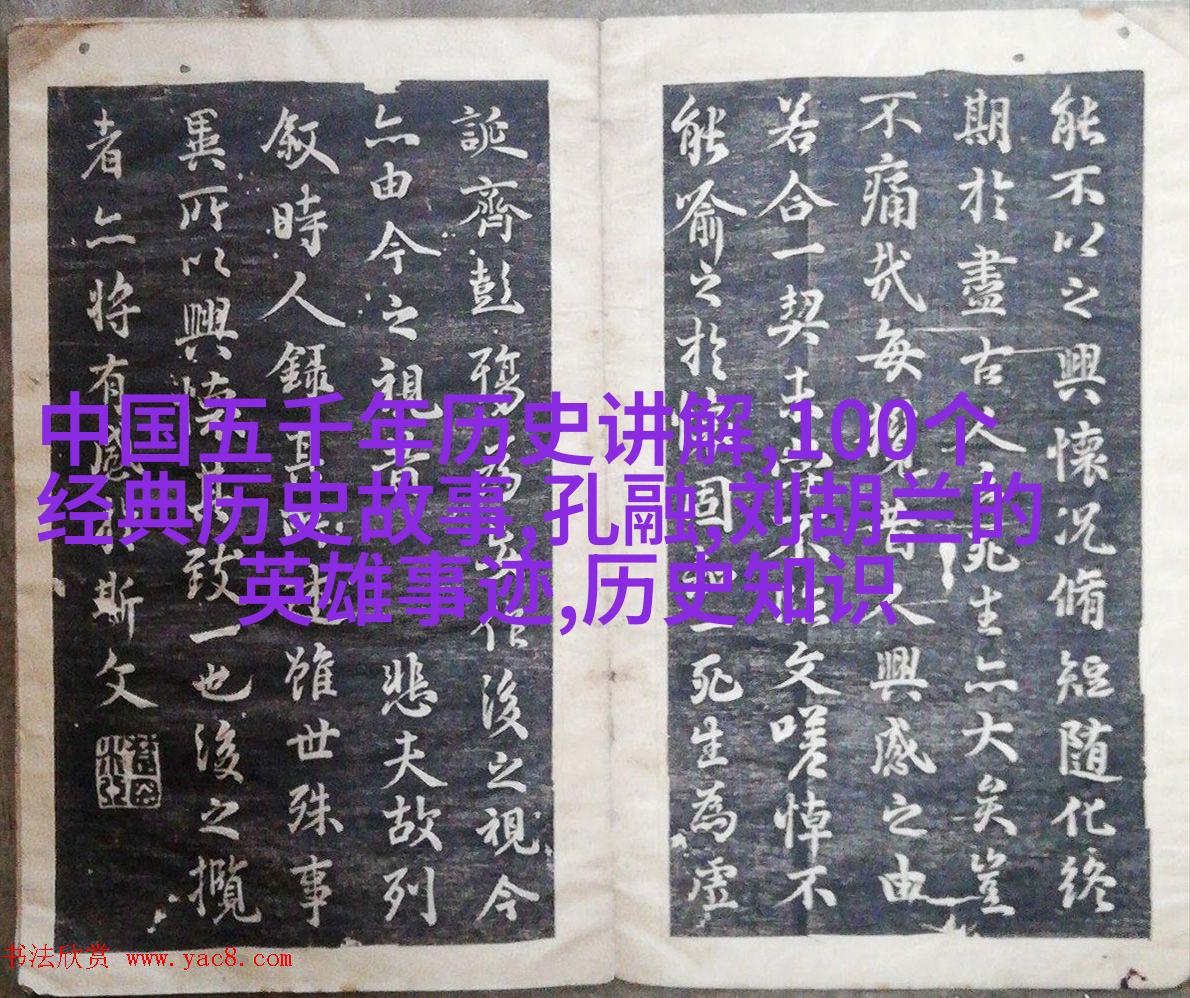 能不以之興懷況脩短随化終
期於盡古人死生亦大矣豈
不痛哉每興感之由
若合一契不文嗟悼不
能喻之於固一死生為虛
誕齊彭殤作後之視今
亦由今之視悲夫故列
敘時人錄其雖世殊事
異所以興懷致一也後之攬
者亦將有感斯文
中国五千年历史讲解,100个
经典历史故事,孔融,刘胡兰的
英雄事迹,历史知识
书法欣赏 www.yac8.com